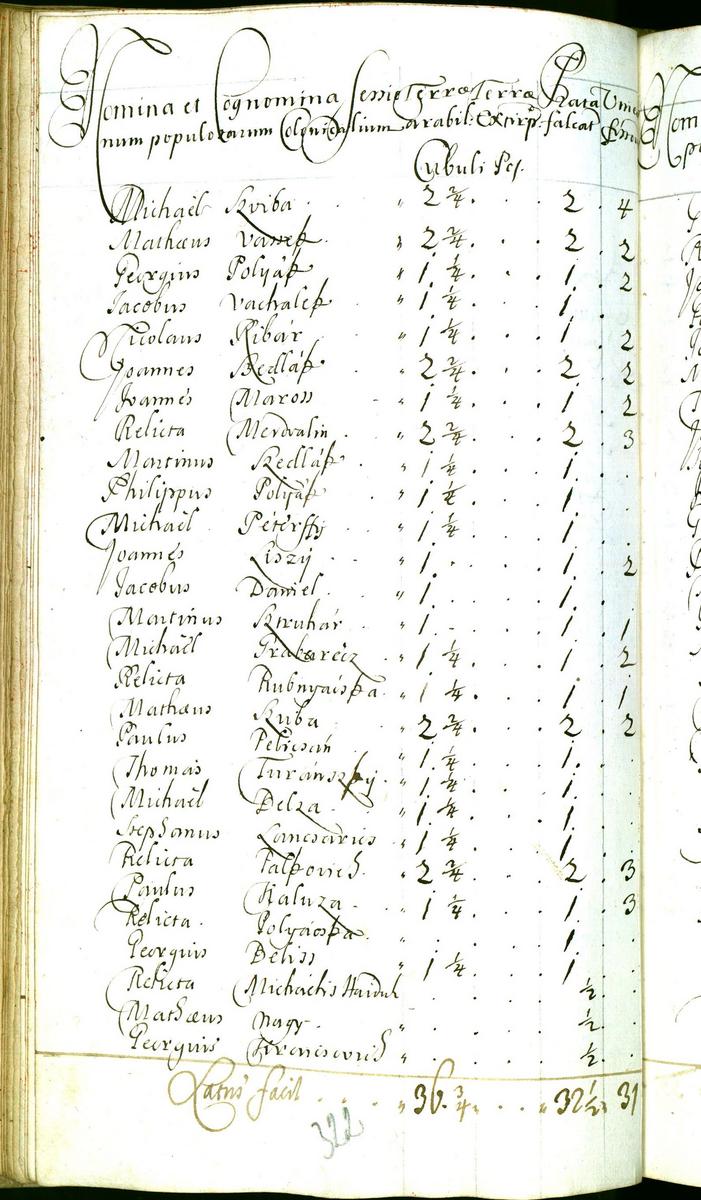 Nomina et Cognomina Sessio Terræ Terræ Prata
num populorum Colonicalium arabil: Extirp: falcat
Cubuli Pos.
Michaël Kviba " 2 2/4 . . 2 . 4
Mathæus Vassek " 2 2/4 . . 2 . 2
Georgius Polyák " 1 1/4 . . 1 . 2
Jacobus Vachalek " 1 1/4 . . 1 .
Nicolaus Ribár " 1 1/4 . . 1 . 2
Joannes Sedlák " 2 2/4 . . 2 . 2
Joannes Maross " 1 1/4 . . 1 . 2
Relicta Merdvalin " 2 2/4 . . 2 . 3
Martinus Sedlák " 1 1/4 . . 1 .
Philippus Polyák " 1 1/4 . . 1 .
Michaël Péterffy " 1 1/4 . . 1 .
Joannes Liszy " 1 . . . 1 . 2
Jacobus Daniel " 1 . . . 1 .
Martinus Struhár " 1 . . . 1 . 1
Michaël Grabarecz " 1 1/4 . . 1 . 2
Relicta Rubnyáiska " 1 1/4 . . 1 . 1
Mathæus Kuba " 2 2/4 . . 2 . 2
Paulus Pelicsán " 1 1/4 . . 1 .
Thomas Turánszky " 1 1/4 . . 1 .
Michaël Delza " 1 1/4 . . 1 .
Stephanus Lancsarics " 1 1/4 . . 1 .
Relicta Palkovich " 2 2/4 . . 2 . 3
Paulus Haluza " 1 1/4 . . 1 . 3
Relicta Polyácska " . . . 1 .
Georgius Deliss " 1 1/4 . . 1 .
Relicta Michaëlis Haiduk . . . 1/2 .
Mathæus Nagy " . . . 1/2 .
Georgius Ferencsovich " . . . 1/2 .
Latus facit . . . " 36. 3/4 . . " 32 1/2 " 31
322